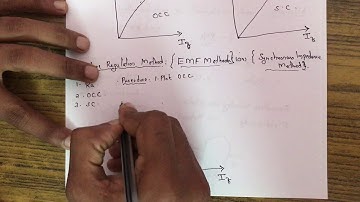 OCC
S.C
If
If
Regulation Method: {EMF Method} (or) {Synchronous Impedance Method}
1. Ra Procedure: 1. Plot OCC
2. OCC
3. SC
If